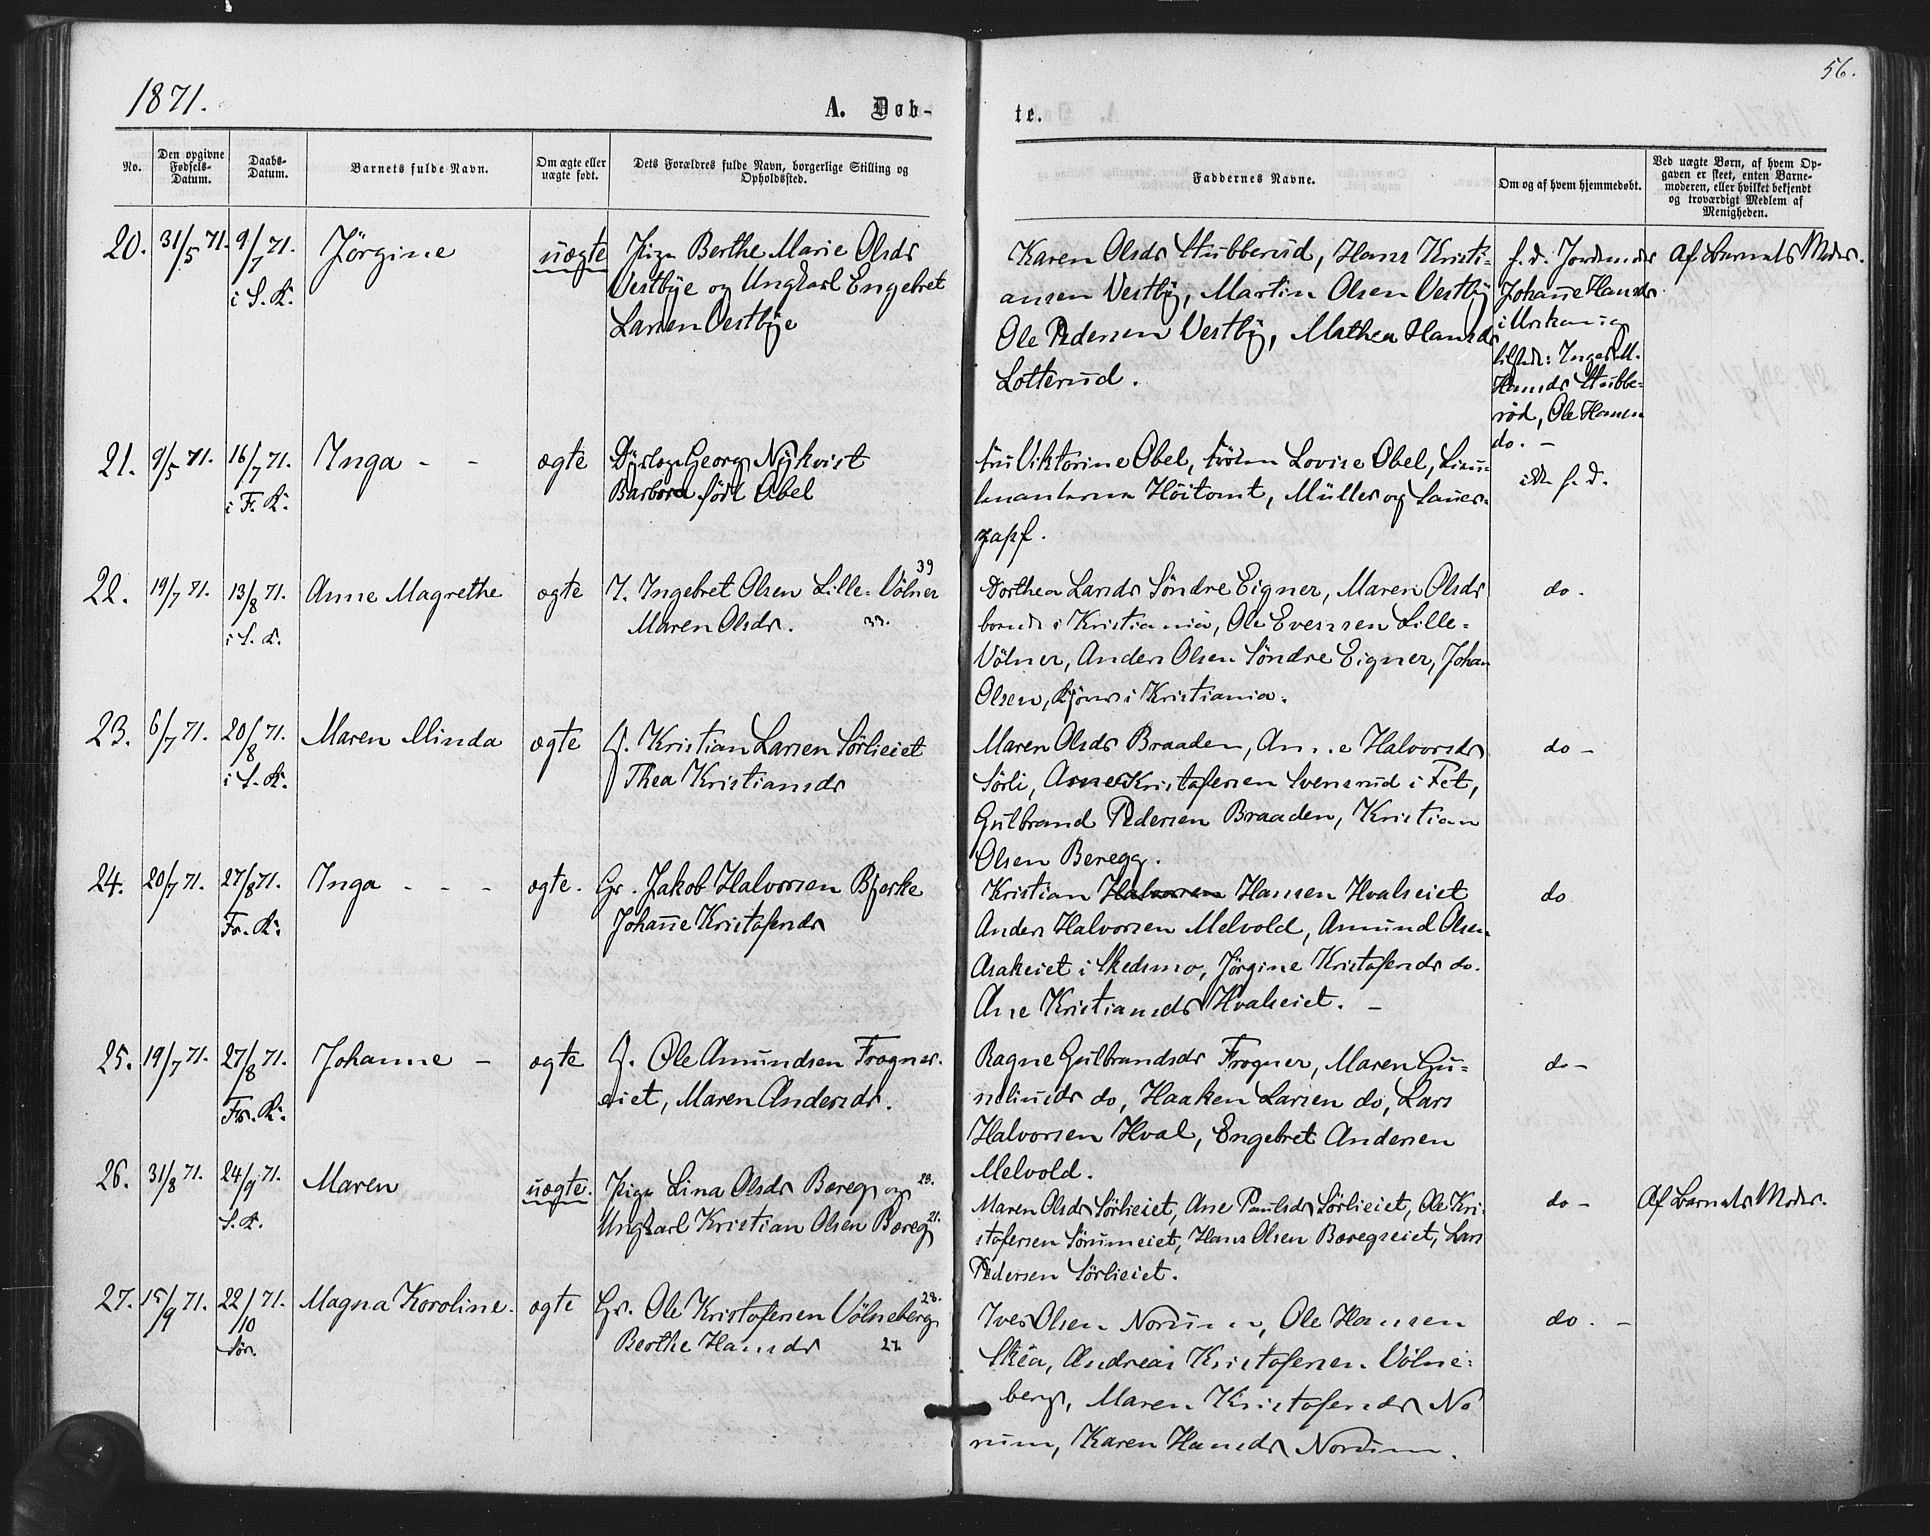 1871.
56.
A. Døb-
te.
No.
Den opgivne Fødsels-Datum.
Daabs-Datum.
Barnets fulde Navn.
Om ægte eller uægte født.
Dets Forældres fulde Navn, borgerlige Stilling og Opholdssted.
Faddernes Navne.
Om og af hvem hjemmedøbt.
Ved uægte Børn, af hvem Opgaven er skeet, enten Barnemoderen, eller hvilket bekjendt og troværdigt Medlem af Menigheden.
20. 31/5 71. 9/7 71. i S. K. Jörgine uægte
Pige Berthe Marie Olsdr
Vestbye og Ungkarl Engebret
Larsen Vestbye
Karen Olsdr Stubberud, Hans Kristi-
ansen Vestby, Martin Olsen Vestby
Ole Pedersen Vestby, Mathea Hansdr
Lotterud.
f. d. Jordmodr
Johanne Hansdr
i Urskoug
tilstede: Inger M.
Hansdr Stubbe-
röd, Ole Hansen
do. -
Af Barnets Moder.
21. 9/5 71. 16/7 71. i F. K. Inga - - ægte
Georg Nÿkvist
Barbora född Abel
Fru Viktorine Abel, Fröken Lovise Abel, Lieu-
tenanterne Höitomt, Müller og Sauer-
zapf.
f. d.
22. 19/7 71. 13/8 71. i S. K. Anne Magrethe ægte
I. Ingebret Olsen Lille-Völner 39
Maren Olsdr. 33.
Dorthea Larsdr Söndre Eigner, Maren Olsdr
boende i Kristiania, Ole Evensen Lille-
Völner, Anders Olsen Söndre Eigner, Johan
Olsen, i Kristiania.
do.
23. 6/7 71. 20/8 71. i S. K. Maren Minda ægte
Kristian Larsen Sörlieiet
Thea Kristiansdr
Maren Olsdr Braaden, Anne Halvorsdr
Sörli, Arne Kristofersen Svensrud i Fet,
Gulbrand Pedersen Braaden, Kristian
Olsen Beregg.
do -
24. 20/7 71. 27/8 71. Fr. K. Inga - - - ægte.
Gr. Jakob Halvorsen Bjerke
Johanne Kristofersdr
Kristian Halvorsen Hansen Hvalseiet
Anders Halvorsen Melvold, Amund Olsen
Asakeiet i Skedsmo, Jörgine Kristofersdr do.
Ane Kristiansdr Hvalseiet. -
do
25. 19/7 71. 27/8 71. Fr. K. Johanne - ægte
Ole Amundsen Frogner-
eiet, Maren Andersdr.
Ragne Gulbrandsdr Frogner, Maren Gu-
nliusdr do, Haaken Larsen do, Lars
Halvorsen Hval, Engebret Andersen
Melvold.
do -
26. 31/8 71. 24/9 71. S. K. Maren uægte.
Pige Lina Olsdr Bæreg og 23.
Ungkarl Kristian Olsen Bæreg 21.
Maren Olsdr Sörlieiet, Ane Paulsdr Sörlieiet, Ole Kri-
stofersen Sörumeiet, Hans Olsen Bæregseiet, Lars
Pedersen Sörlieiet.
do -
Af Barnets Moder.
27. 15/9 71. 22/10 71. Sör. Magna Karoline. ægte
Gr. Ole Kristofersen Völneberg 28.
Berthe Hansdr 27.
Iver Olsen Nordum, Ole Hansen
Skëa, Andreas Kristofersen Völne-
berg, Maren Kristofersdr No
rum, Karen Hansdr Nordum.
do. -